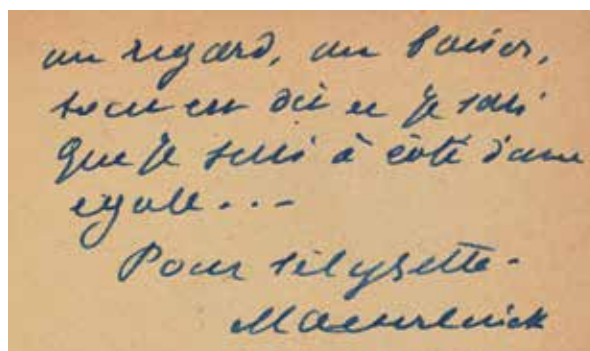 un regard, un baiser,
tout est dit et je sais
que je suis à côté d'une
egale...
Pour Sélysette-
Maeterlinck